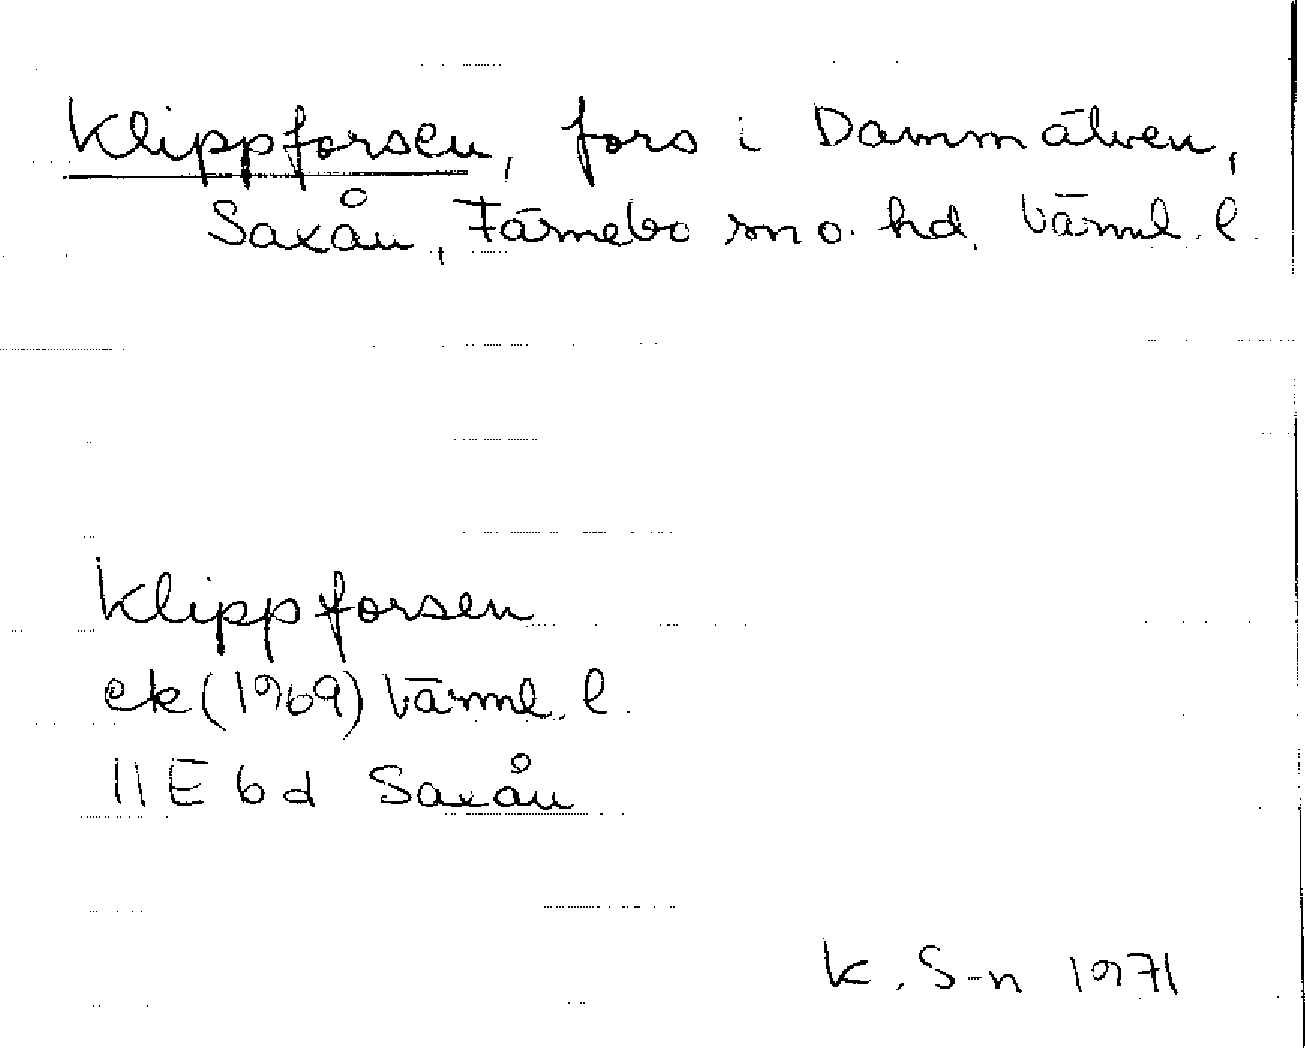 Klippforsen, fors i Dammälven,
Saxån, Färnebo sn o. hd, Värml. l.
Klippforsen
ek (1969) Värml. l.
11E 6d Saxån
K. S-n 1971